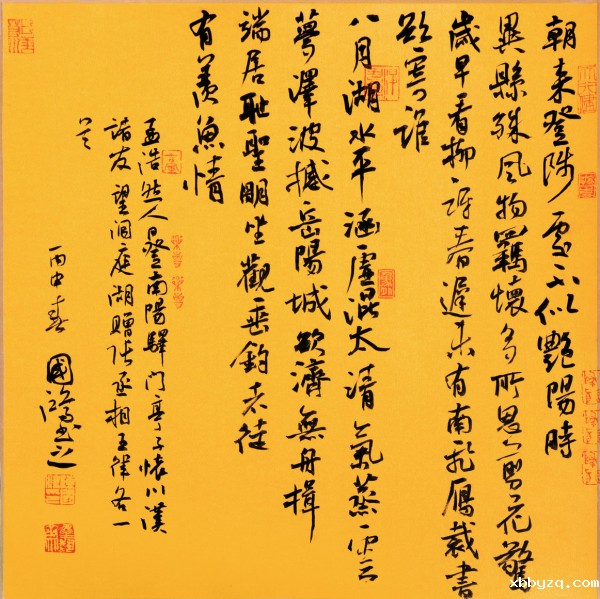 朝来登陟處不似艷陽時
異縣殊風物羈懷多所思剪花驚
歲早看柳訝春遲未有南飛雁裁書
欲寄誰
八月湖水平涵虛混太清氣蒸雲
夢澤波撼岳陽城欲濟無舟楫
端居耻聖明坐觀垂釣者徒
有羨魚情
孟浩然人日登南陽驛門亭子懷川漢
諸友望洞庭湖贈張丞相五律各一
首
丙申春 國鴻書之
xbbyzq.com